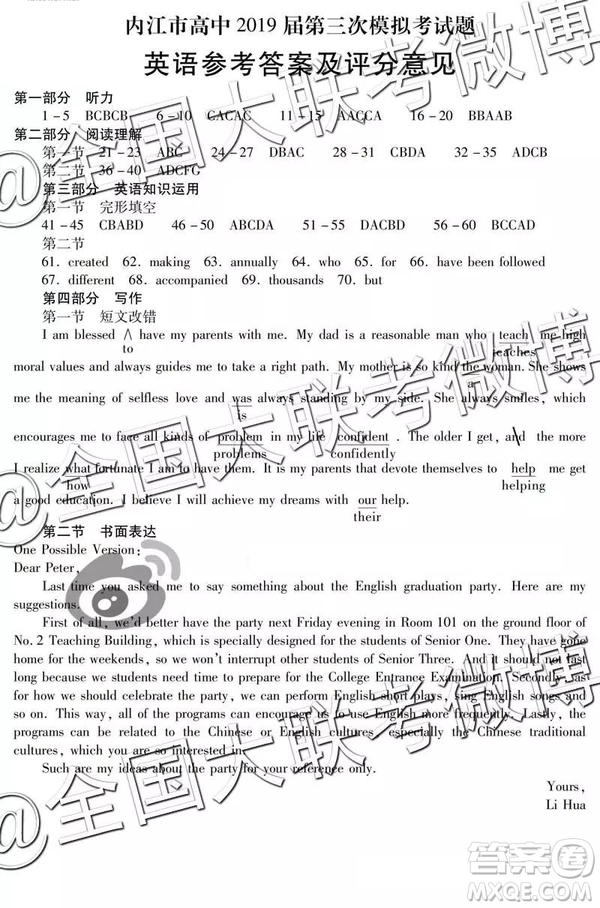 内江市高中 2019 届第三次模拟考试题
英语参考答案及评分意见
第一部分 听力
1-5 BCBCB 6-10 CACAC 11-15 AACCA 16-20 BBAAB
第二部分 阅读理解
第一节 21-23 ABC 24-27 DBAC 28-31 CBDA 32-35 ADCB
第二节 36-40 ADCFG
第三部分 英语知识运用
第一节 完形填空
41-45 CBABD 46-50 ABCDA 51-55 DACBD 56-60 BCCAD
第二节
61. created 62. making 63. annually 64. who 65. for 66. have been followed
67. different 68. accompanied 69. thousands 70. but
第四部分 写作
第一节 短文改错
I am blessed ∧ have my parents with me. My dad is a reasonable man who teach me high
to teaches
moral values and always guides me to take a right path. My mother is so kind the woman. She shows
a
me the meaning of selfless love and was always standing by my side. She always smiles, which
is
encourages me to face all kinds of problem in my life confident. The older I get, and the more
problems confidently
I realize what fortunate I am to have them. It is my parents that devote themselves to help me get
how helping
a good education. I believe I will achieve my dreams with our help.
their
第二节 书面表达
One Possible Version:
Dear Peter,
Last time you asked me to say something about the English graduation party. Here are my
suggestions.
First of all, we'd better have the party next Friday evening in Room 101 on the ground floor of
No. 2 Teaching Building, which is specially designed for the students of Senior One. They have gone
home for the weekends, so we won't interrupt other students of Senior Three. And it should not last
long because we students need time to prepare for the College Entrance Examination. Secondly, as
for how we should celebrate the party, we can perform English short plays, sing English songs and
so on. This way, all of the programs can encourage us to use English more frequently. Lastly, the
programs can be related to the Chinese or English cultures, especially the Chinese traditional
cultures, which you are so interested in.
Such are my ideas about the party for your reference only.
Yours,
Li Hua
@全国大联考微博
@全国大联考微博
@全国大联考微博
答案圈
MXQE.COM